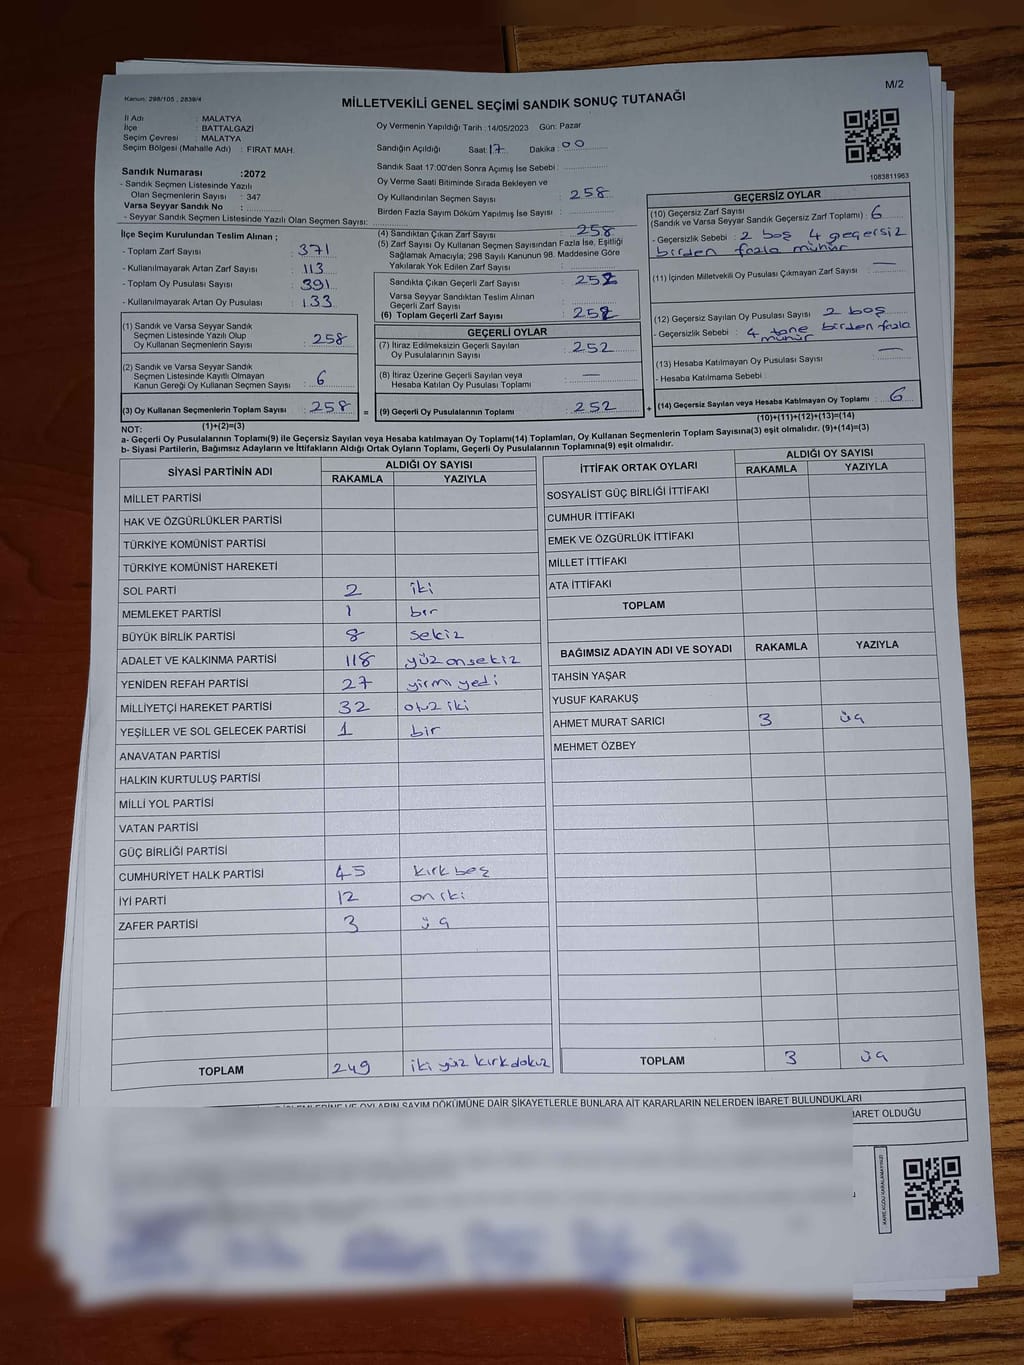 Kanun: 298/105 , 2839/4
M/2
MİLLETVEKİLİ GENEL SEÇİMİ SANDIK SONUÇ TUTANAĞI
İl Adı : MALATYA
İlçe : BATTALGAZİ
Seçim Çevresi : MALATYA
Seçim Bölgesi (Mahalle Adı) : FIRAT MAH.
Oy Vermenin Yapıldığı Tarih :14/05/2023 Gün: Pazar
Sandığın Açıldığı Saat: 17 Dakika : 00
Sandık Saat 17:00'den Sonra Açımış İse Sebebi :
Oy Verme Saati Bitiminde Sırada Bekleyen ve
Oy Kullandırılan Seçmen Sayısı : 258
Birden Fazla Sayım Döküm Yapılmış İse Sayısı :
1083811963
Sandık Numarası :2072
- Sandık Seçmen Listesinde Yazılı
Olan Seçmenlerin Sayısı : 347
Varsa Seyyar Sandık No :
- Seyyar Sandık Seçmen Listesinde Yazılı Olan Seçmen Sayısı:
İlçe Seçim Kurulundan Teslim Alınan ;
- Toplam Zarf Sayısı : 371
- Kullanılmayarak Artan Zarf Sayısı : 113
- Toplam Oy Pusulası Sayısı : 391
- Kullanılmayarak Artan Oy Pusulası : 133
(1) Sandık ve Varsa Seyyar Sandık
Seçmen Listesinde Yazılı Olup
Oy Kullanan Seçmenlerin Sayısı : 258
(2) Sandık ve Varsa Seyyar Sandık
Seçmen Listesinde Kayıtlı Olmayan
Kanun Gereği Oy Kullanan Seçmen Sayısı : 6
(3) Oy Kullanan Seçmenlerin Toplam Sayısı : 258
(1)+(2)=(3)
(4) Sandıktan Çıkan Zarf Sayısı : 258
(5) Zarf Sayısı Oy Kullanan Seçmen Sayısından Fazla İse, Eşitliği
Sağlamak Amacıyla; 298 Sayılı Kanunun 98. Maddesine Göre
Yakılarak Yok Edilen Zarf Sayısı :
Sandıkta Çıkan Geçerli Zarf Sayısı : 252
Varsa Seyyar Sandıktan Teslim Alınan
Geçerli Zarf Sayısı :
(6) Toplam Geçerli Zarf Sayısı : 252
GEÇERLİ OYLAR
(7) İtiraz Edilmeksizin Geçerli Sayılan
Oy Pusulalarının Sayısı : 252
(8) İtiraz Üzerine Geçerli Sayılan veya
Hesaba Katılan Oy Pusulası Toplamı : —
= (9) Geçerli Oy Pusulalarının Toplamı : 252
GEÇERSİZ OYLAR
(10) Geçersiz Zarf Sayısı
(Sandık ve Varsa Seyyar Sandık Geçersiz Zarf Toplamı) : 6
- Geçersizlik Sebebi : 2 boş 4 geçersiz
birden fazla mühür
(11) İçinden Milletvekili Oy Pusulası Çıkmayan Zarf Sayısı : —
(12) Geçersiz Sayılan Oy Pusulası Sayısı : 2 boş
- Geçersizlik Sebebi : 4 tane birden fazla
mühür
(13) Hesaba Katılmayan Oy Pusulası Sayısı : —
- Hesaba Katılmama Sebebi :
+ (14) Geçersiz Sayılan veya Hesaba Katılmayan Oy Toplamı : 6
(10)+(11)+(12)+(13)=(14)
NOT:
a- Geçerli Oy Pusulalarının Toplamı(9) ile Geçersiz Sayılan veya Hesaba katılmayan Oy Toplamı(14) Toplamları, Oy Kullanan Seçmenlerin Toplam Sayısına(3) eşit olmalıdır. (9)+(14)=(3)
b- Siyasi Partilerin, Bağımsız Adayların ve İttifakların Aldığı Ortak Oyların Toplamı, Geçerli Oy Pusulalarının Toplamına(9) eşit olmalıdır.
SİYASİ PARTİNİN ADI ALDIĞI OY SAYISI
RAKAMLA YAZIYLA
MİLLET PARTİSİ
HAK VE ÖZGÜRLÜKLER PARTİSİ
TÜRKİYE KOMÜNİST PARTİSİ
TÜRKİYE KOMÜNİST HAREKETİ
SOL PARTİ 2 iki
MEMLEKET PARTİSİ 1 bir
BÜYÜK BİRLİK PARTİSİ 8 sekiz
ADALET VE KALKINMA PARTİSİ 118 yüz onsekiz
YENİDEN REFAH PARTİSİ 27 yirmi yedi
MİLLİYETÇİ HAREKET PARTİSİ 32 otuz iki
YEŞİLLER VE SOL GELECEK PARTİSİ 1 bir
ANAVATAN PARTİSİ
HALKIN KURTULUŞ PARTİSİ
MİLLİ YOL PARTİSİ
VATAN PARTİSİ
GÜÇ BİRLİĞİ PARTİSİ
CUMHURİYET HALK PARTİSİ 45 kırk beş
İYİ PARTİ 12 on iki
ZAFER PARTİSİ 3 üç
TOPLAM 249 iki yüz kırk dokuz
İTTİFAK ORTAK OYLARI ALDIĞI OY SAYISI
RAKAMLA YAZIYLA
SOSYALİST GÜÇ BİRLİĞİ İTTİFAKI
CUMHUR İTTİFAKI
EMEK VE ÖZGÜRLÜK İTTİFAKI
MİLLET İTTİFAKI
ATA İTTİFAKI
TOPLAM
BAĞIMSIZ ADAYIN ADI VE SOYADI RAKAMLA YAZIYLA
TAHSİN YAŞAR
YUSUF KARAKUŞ
AHMET MURAT SARICI 3 üç
MEHMET ÖZBEY
TOPLAM 3 üç
İŞLEMLERİNE VE OYLARIN SAYIM DÖKÜMÜNE DAİR ŞİKAYETLERLE BUNLARA AİT KARARLARIN NELERDEN İBARET BULUNDUKLARI
İBARET OLDUĞU